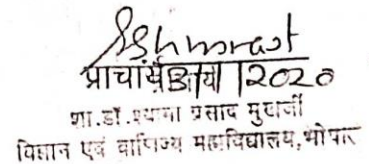 प्राचार्य 3/11/2020
शा.डॉ.श्यामा प्रसाद मुखर्जी
विज्ञान एवं वाणिज्य महाविद्यालय,भोपाल